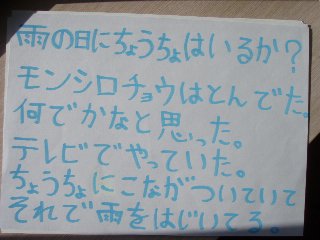 雨の日にちょうちょはいるか？
モンシロチョウはとんでた。
何でかなと思った。
テレビでやっていた。
ちょうちょにこながついていて
それで雨をはじいてる。